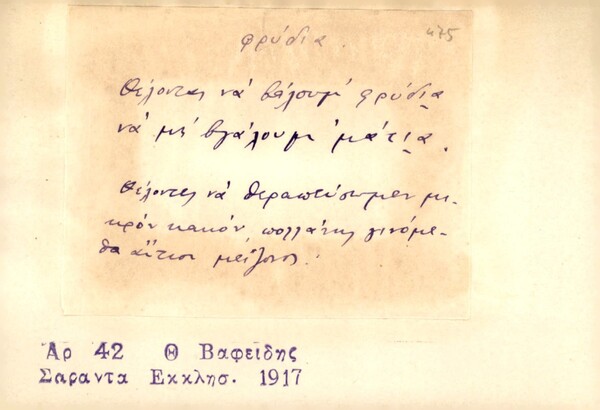 φρύδια.
475
Θέλοντας νὰ βάλουμ' φρύδια
νὰ μὴ βγάλουμ' μάτια.
Θέλοντες νὰ θεραπεύσωμεν μι-
κρὸν κακόν, πολλάκις γινόμε-
θα αἴτιοι μείζονος.
Αρ 42 Θ Βαφειδης
Σαραντα Εκκλησ. 1917